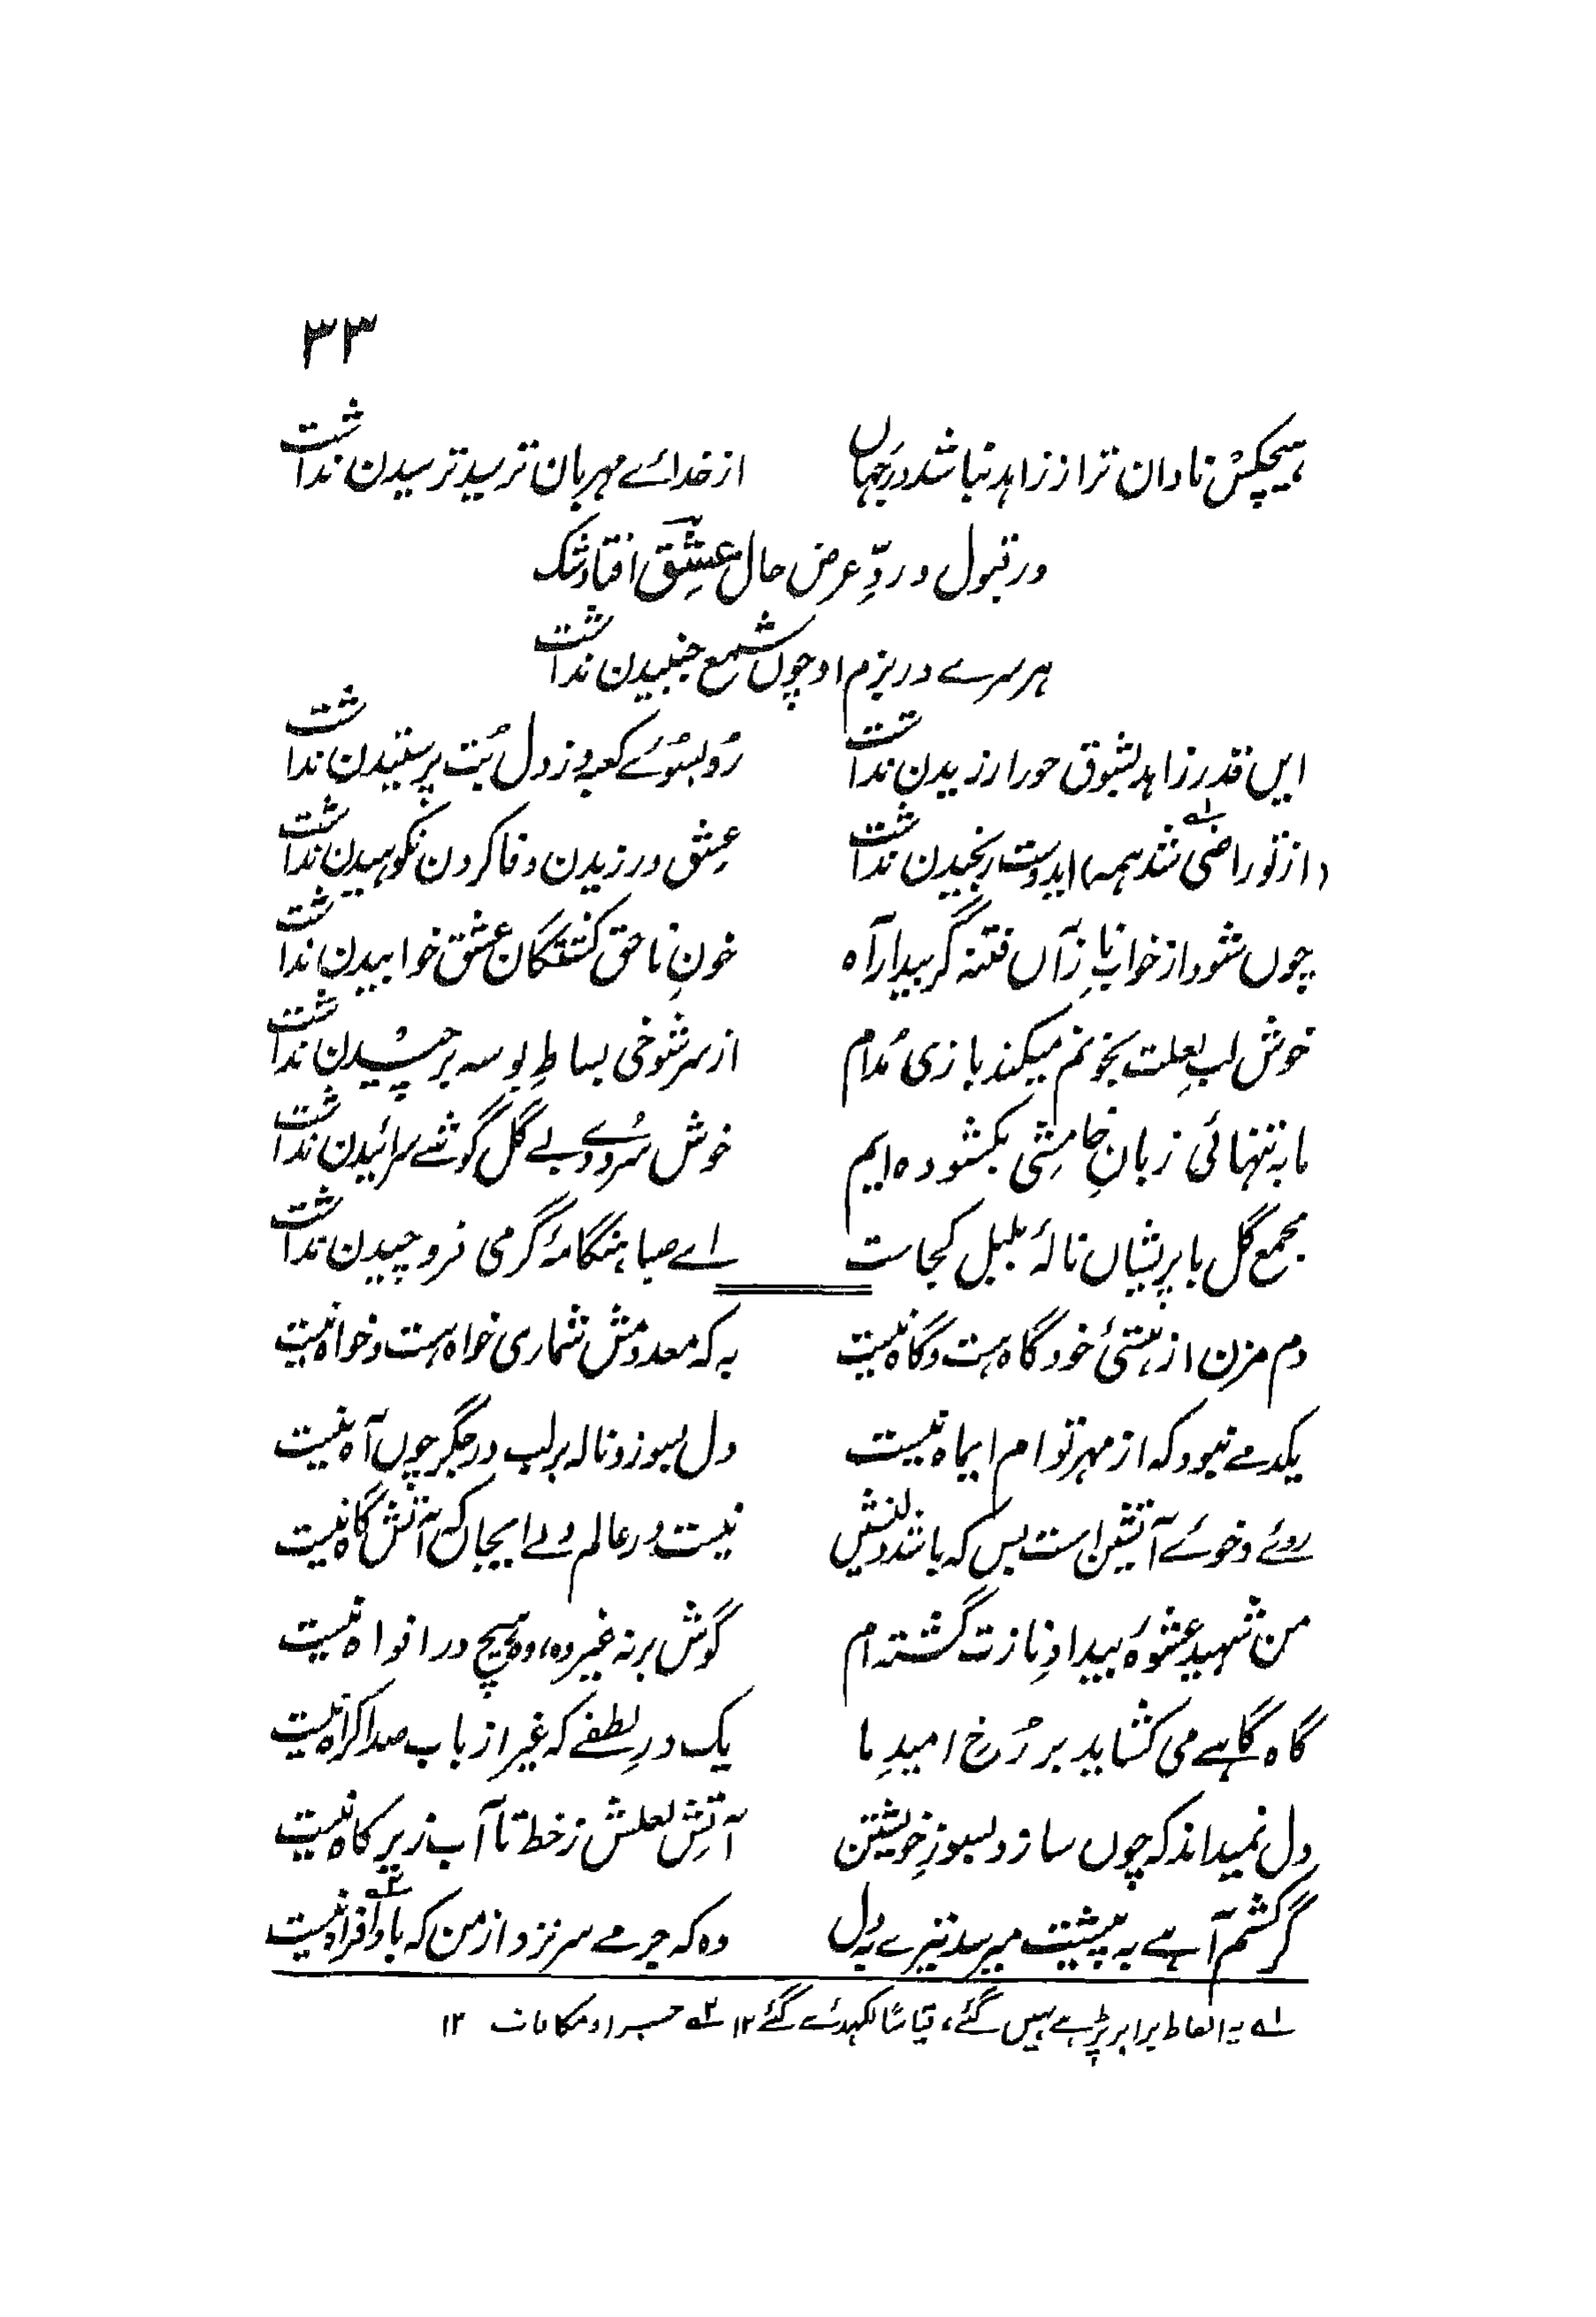 ۳۳
ہیچکس نادان تر از زاہد نباشد در جہاں از خدائے مہربان ترسید ترسیدن نداشت
در قبول و ردِّ عرض حال عشق افتاد شک
ہر سرے در بزم او چوں شمع جنبیدن نداشت
ایں قدر زاہد بشوق حور ارزیدن نداشت رُو بسُوئے کعبہ و ز دل بُت پرستیدن نداشت
(از تو راضی شد ہمہ) ۱ے ایدوست رنجیدن نداشت عشق ورزیدن وفا کردن نکوہیدن نداشت
چوں شود از خواب نازِ آں فتنہ گر بیدار آہ خونِ ناحق کشتگان عشق خوابیدن نداشت
خوش لبِ لعلت بخونم میکند بازی مُدام از سر شوخی بساطِ بوسہ برچیدن نداشت
ما بہ تنہائی زبانِ خامشی بکشودہ ایم خوش سُرودے بے گل گوشے سرائیدن نداشت
مجمع گل با پریشاں نالۂ بلبل کجاست اے صبا ہنگامۂ گرمی فرو چیدن نداشت
دم مزن از ہستئ خود گاہ ہست و گاہ نیست بہ کہ معدومش شماری خواہ ہست و خواہ نیست
یکدمے نبود کہ از مہر تو ام ایماہ نیست دل بسوز و نالہ بر لب در جگر چوں آہ نیست
روئے و خوئے آتشیں است بس کہ باشد دلنشیں نیست در عالم دلے ایجاں کہ آتش گاہ نیست
من شہید عشوۂ بیدادِ نازت گشتہ ام گوش بر نہ غیر دہ، دہ ہیچ در افواہ نیست
گاہ گاہے می کشاید بر رُخ امیدِ ما یک درِ لطفے کہ غیر از باب صد اکراہ نیست
دل نمیداند کہ چوں سازد بسوزِ خویشتن آتشِ لعلش ز خط تا آب زیر کاہ نیست
گر کشم آہے بہ پیشت میرسد تیرے بہ دل وہ کہ جرمے سر نزد از من کہ باد افراہ ۲ے نیست
۱ے یہ الفاظ برابر پڑہے نہیں گئے، قیاساً لکھدئے گئے ۱۲ ۲ے جسزا و مکافات ۱۲